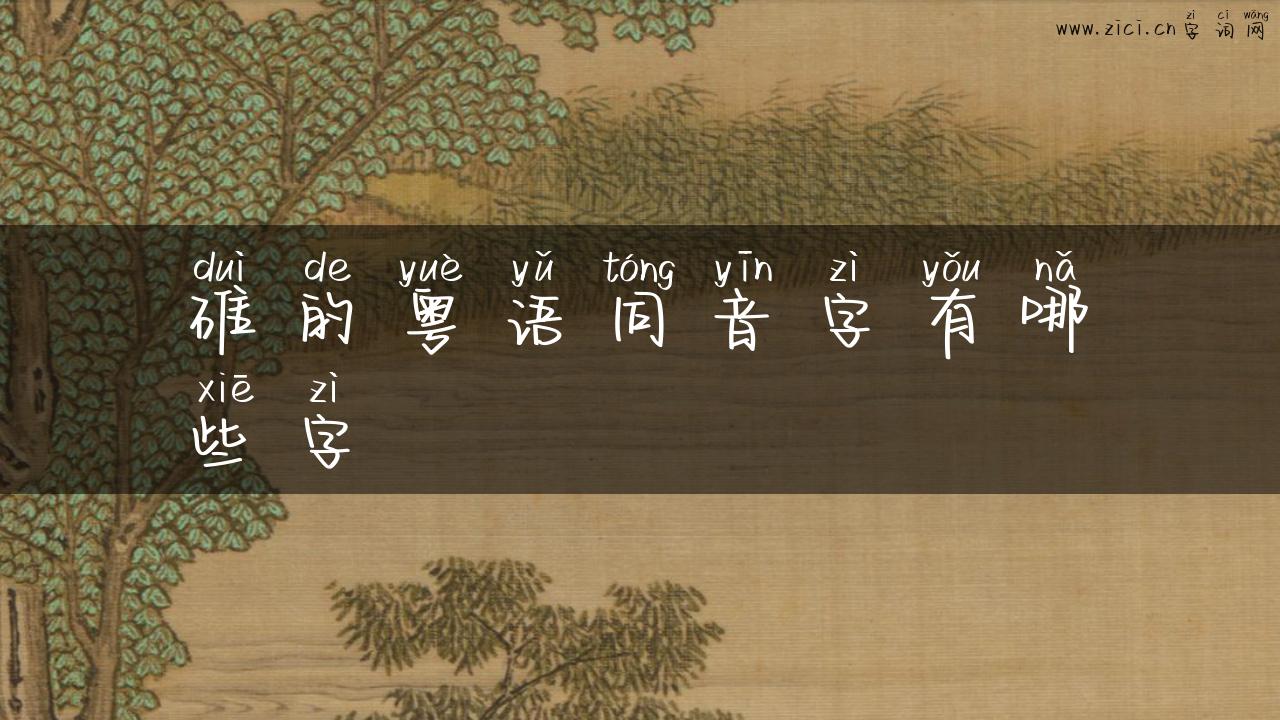 zì cí wǎng
www.zici.cn字词网
duì de yuè yǔ tóng yīn zì yǒu nǎ
碓的粤语同音字有哪
xiē zì
些字